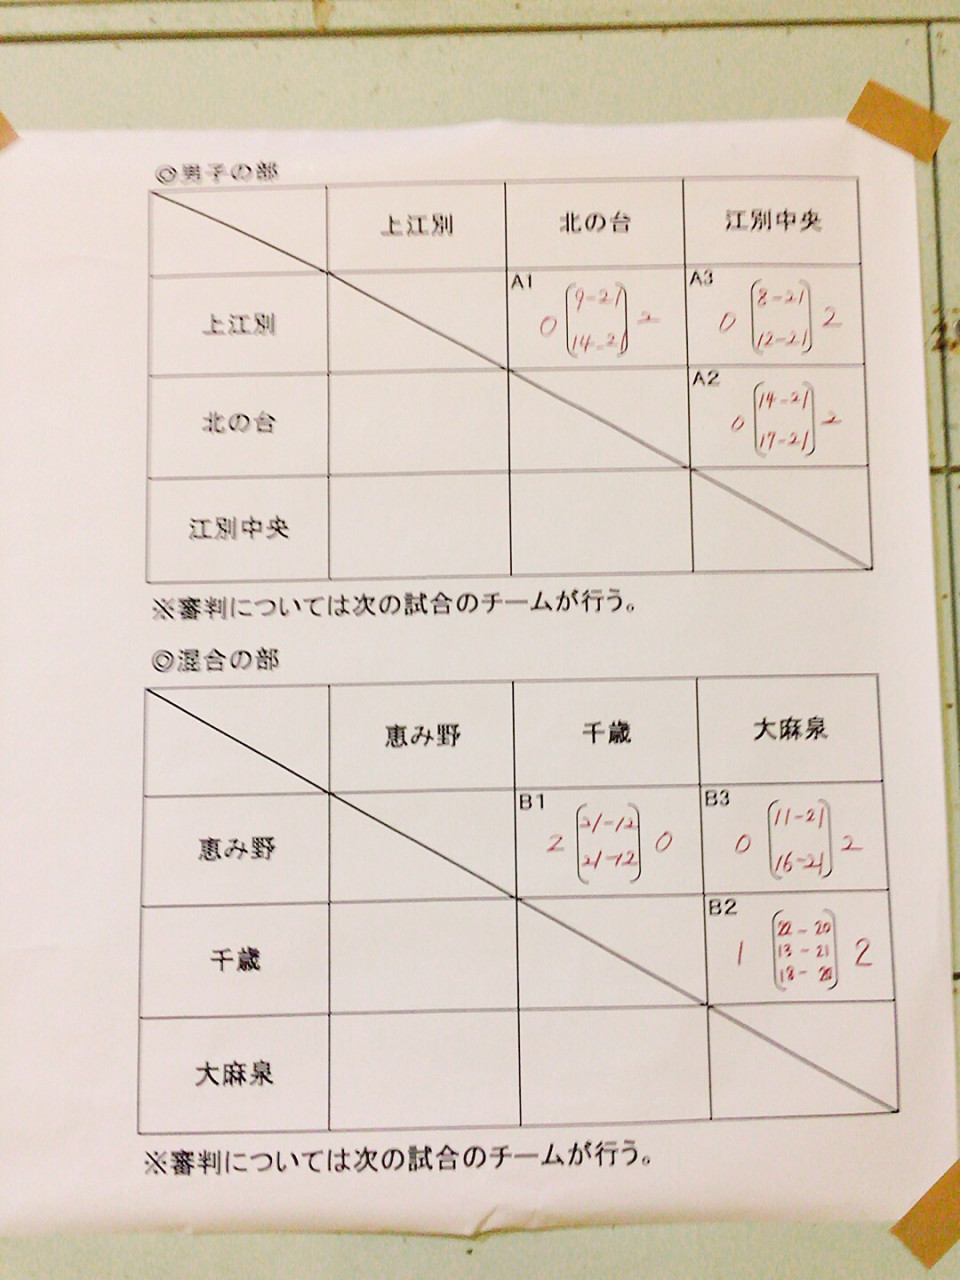 ◎男子の部
上江別 北の台 江別中央
上江別 A1 0 9-21 14-21 2 A3 0 8-21 12-21 2
北の台 A2 0 14-21 17-21 2
江別中央
※審判については次の試合のチームが行う。
◎混合の部
恵み野 千歳 大麻泉
恵み野 B1 2 21-12 21-12 0 B3 0 11-21 16-21 2
千歳 B2 1 22-20 13-21 18- 2
大麻泉
※審判については次の試合のチームが行う。